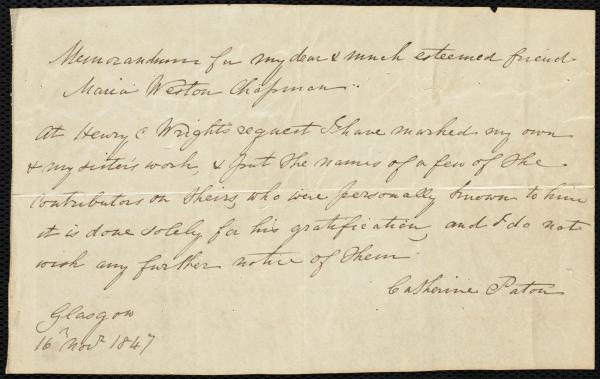 Memorandum for my dear & much esteemed friend
Maria Weston Chapman.
At Henry C Wright's request I have marked my own
& my sister's work, & put the names of a few of the
contributors on theirs, who were personally known to him
it is done solely for his gratification, and I do not
wish any further notice of them.
Catherine Paton
Glasgow
16th Novr 1847